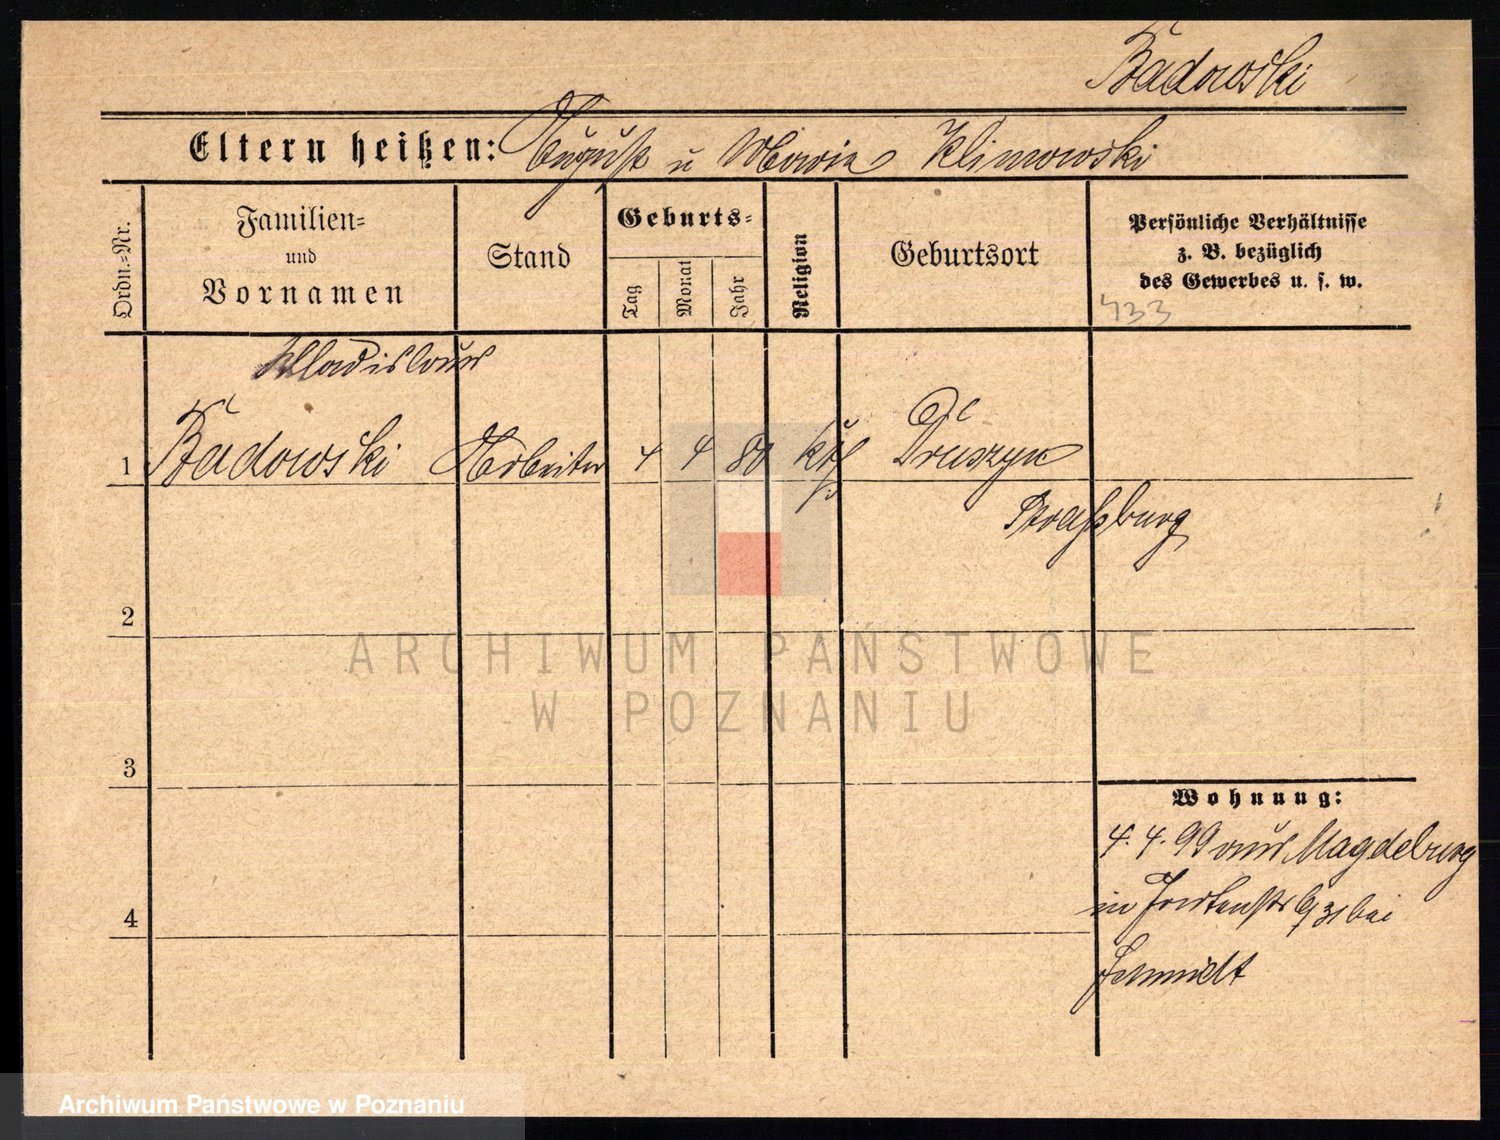 Badowski
Eltern heißen: August u Maria Klimowski
Ordn.-Nr.
Familien-
und
Vornamen
Stand
Geburts-
Tag
Monat
Jahr
Religion
Geburtsort
Persönliche Verhältnisse
z. B. bezüglich
des Gewerbes u. s. w.
433
Wladislaus
1 Badowski Arbeiter 4 4 80 kth Druszyn
Straßburg
2
ARCHIWUM PAŃSTWOWE
W POZNANIU
3
Wohnung:
4. 4. 99 aus Magdeburg
in 31 bei
4
Schmidt
Archiwum Państwowe w Poznaniu